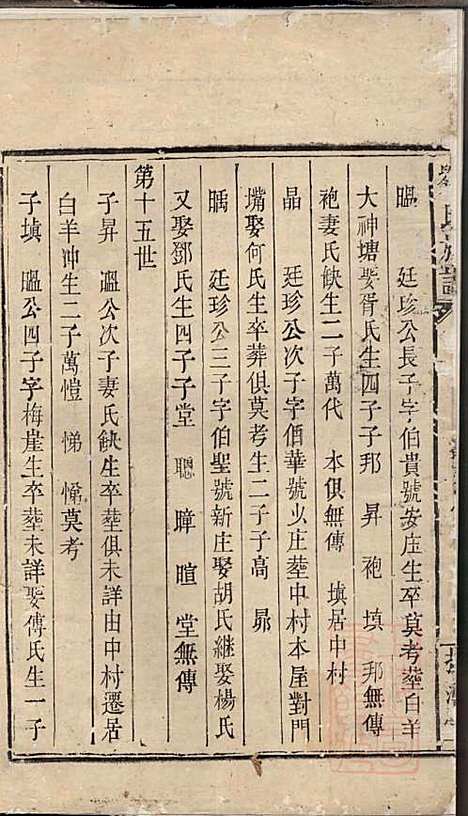 氏族譜
㬈 廷珍公長子字伯貴號安庄生卒莫考葬白羊
大神塘娶胥氏生四子子邦 昇 袍 填 邦無傳
袍妻氏缺生二子萬代 本俱無傳 填居中村
晶 廷珍公次子字伯華號少庄葬中村本屋對門
嘴娶何氏生卒葬俱莫考生二子子高 昴
㬋 廷珍公三子字伯聖號新庄娶胡氏繼娶楊氏
又娶鄧氏生四子子堂 聰 瞕 暄 堂無傳
第十五世
子昇 㬈公次子妻氏缺生卒葬俱未詳由中村遷居
白羊冲生二子萬愷 悌 惀莫考
子填 㬈公四子字梅崖生卒葬未詳娶傅氏生一子